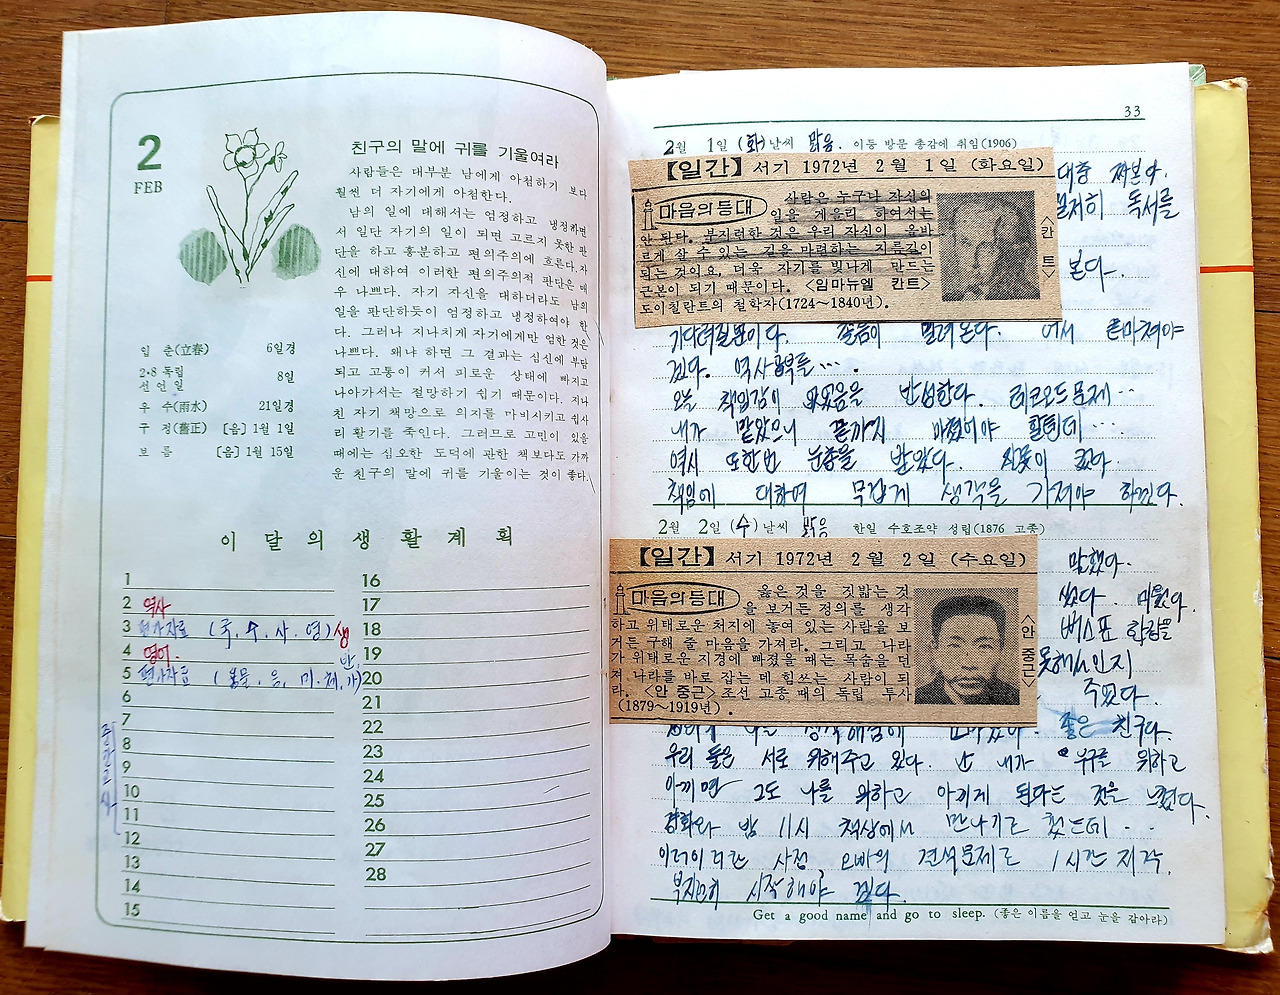 2
FEB
친구의 말에 귀를 기울여라
사람들은 대부분 남에게 아첨하기 보다
훨씬 더 자기에게 아첨한다.
남의 일에 대해서는 엄정하고 냉정하면
서 일단 자기의 일이 되면 고르지 못한 판
단을 하고 흥분하고 편의주의에 흐른다. 자
신에 대하여 이러한 편의주의적 판단은 매
우 나쁘다. 자기 자신을 대하더라도 남의
일을 판단하듯이 엄정하고 냉정하여야 한
다. 그러나 지나치게 자기에게만 엄한 것은
나쁘다. 왜냐 하면 그 결과는 심신에 부담
되고 고통이 커서 괴로운 상태에 빠지고
나아가서는 절망하기 쉽기 때문이다. 지나
친 자기 책망으로 의지를 마비시키고 쉽사
리 활기를 죽인다. 그러므로 고민이 있을
때에는 심오한 도덕에 관한 책보다도 가까
운 친구의 말에 귀를 기울이는 것이 좋다.
입 춘(立春) 6일경
2·8 독립
선언일 8일
우 수(雨水) 21일경
구 정(舊正) [음] 1월 1일
보 름 [음] 1월 15일
이 달의 생 활 계 획
1 16
2 역사 17
3 (국, 수, 사, 영) 생 18
4 영어. 19
5 20
6 21
7 22
8 23
9 24
10 25
11 26
12 27
13 28
14
15
33
2월 1일 (화) 날씨 맑음. 이등 방문 총감에 취임(1906)
【일간】 서기 1972년 2월 1일 (화요일)
마음의등대 사람은 누구나 자신의
일을 게을리 하여서는
안 된다. 부지런한 것은 우리 자신이 올바
르게 살 수 있는 길을 마련하는 지름길이
되는 것이요, 더욱 자기를 빛나게 만드는
근본이 되기 때문이다. <임마뉴엘 칸트>
도이칠란트의 철학자(1724~1840년).
<칸트>
독서를
본다.
졸음이 밀려온다. 어서 끝마쳐야
겠다. 역사공부를….
오늘 책임감이 없었음을 반성한다. 레코오드 문제‥
내가 맡았으니 끝까지 마쳤어야 할텐데….
역시 또한번 눈총을 받았다.
책임에 대하여 무겁게 생각을 가져야 하겠다.
2월 2일 (수) 날씨 맑음 한일 수호조약 성립(1876 고종)
【일간】 서기 1972년 2월 2일 (수요일)
마음의등대 옳은 것을 짓밟는 것
을 보거든 정의를 생각
하고 위태로운 처지에 놓여 있는 사람을 보
거든 구해 줄 마음을 가져라. 그리고 나라
가 위태로운 지경에 빠졌을 때는 목숨을 던
져 나라를 바로 잡는 데 힘쓰는 사람이 되
라. <안 중근> 조선 고종 때의 독립 투사
(1879~1919년).
<안중근>
말했다.
썼다. 미웠다.
버스표 한장을
못해선인지
주었다.
좋은 친구다.
우리 둘은 서로 위해주고 있다. 난 내가 우구를 위하고
아끼면 그도 나를 위하고 아끼게 된다는 것을 느꼈다.
밤 11시 책상에서 만나기로 했는데‥
이러이러한 사정 오빠의 견석문제로 1시간 지각.
부지런히 시작해야 겠다.
Get a good name and go to sleep. (좋은 이름을 얻고 눈을 감아라)